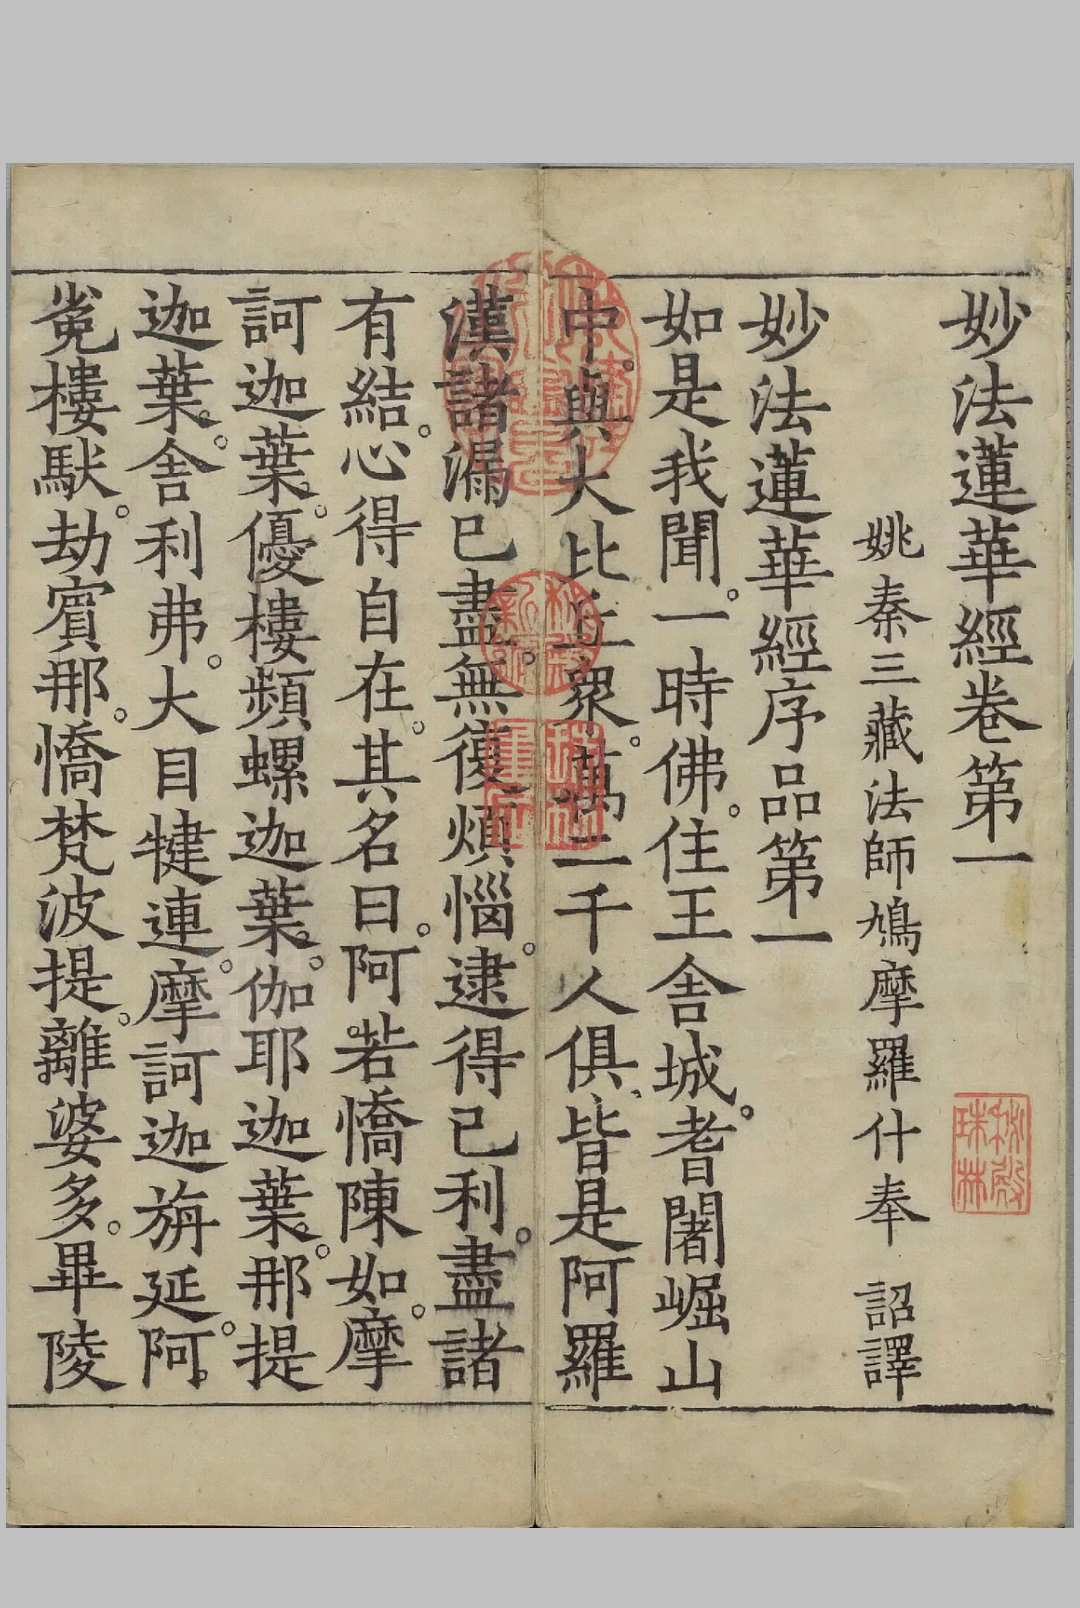 妙法蓮華經卷第一
姚秦三藏法師鳩摩羅什奉 詔譯
妙法蓮華經序品第一
如是我聞。一時佛。住王舍城。耆闍崛山
中。與大比丘衆。萬二千人俱、皆是阿羅
漢諸漏已盡。無復煩惱。逮得己利。盡諸
有結。心得自在。其名曰。阿若憍陳如。摩
訶迦葉。優樓頻螺迦葉。伽耶迦葉。那提
迦葉。舍利弗。大目犍連。摩訶迦旃延。阿
㝹樓馱。劫賓那。憍梵波提。離婆多。畢陵